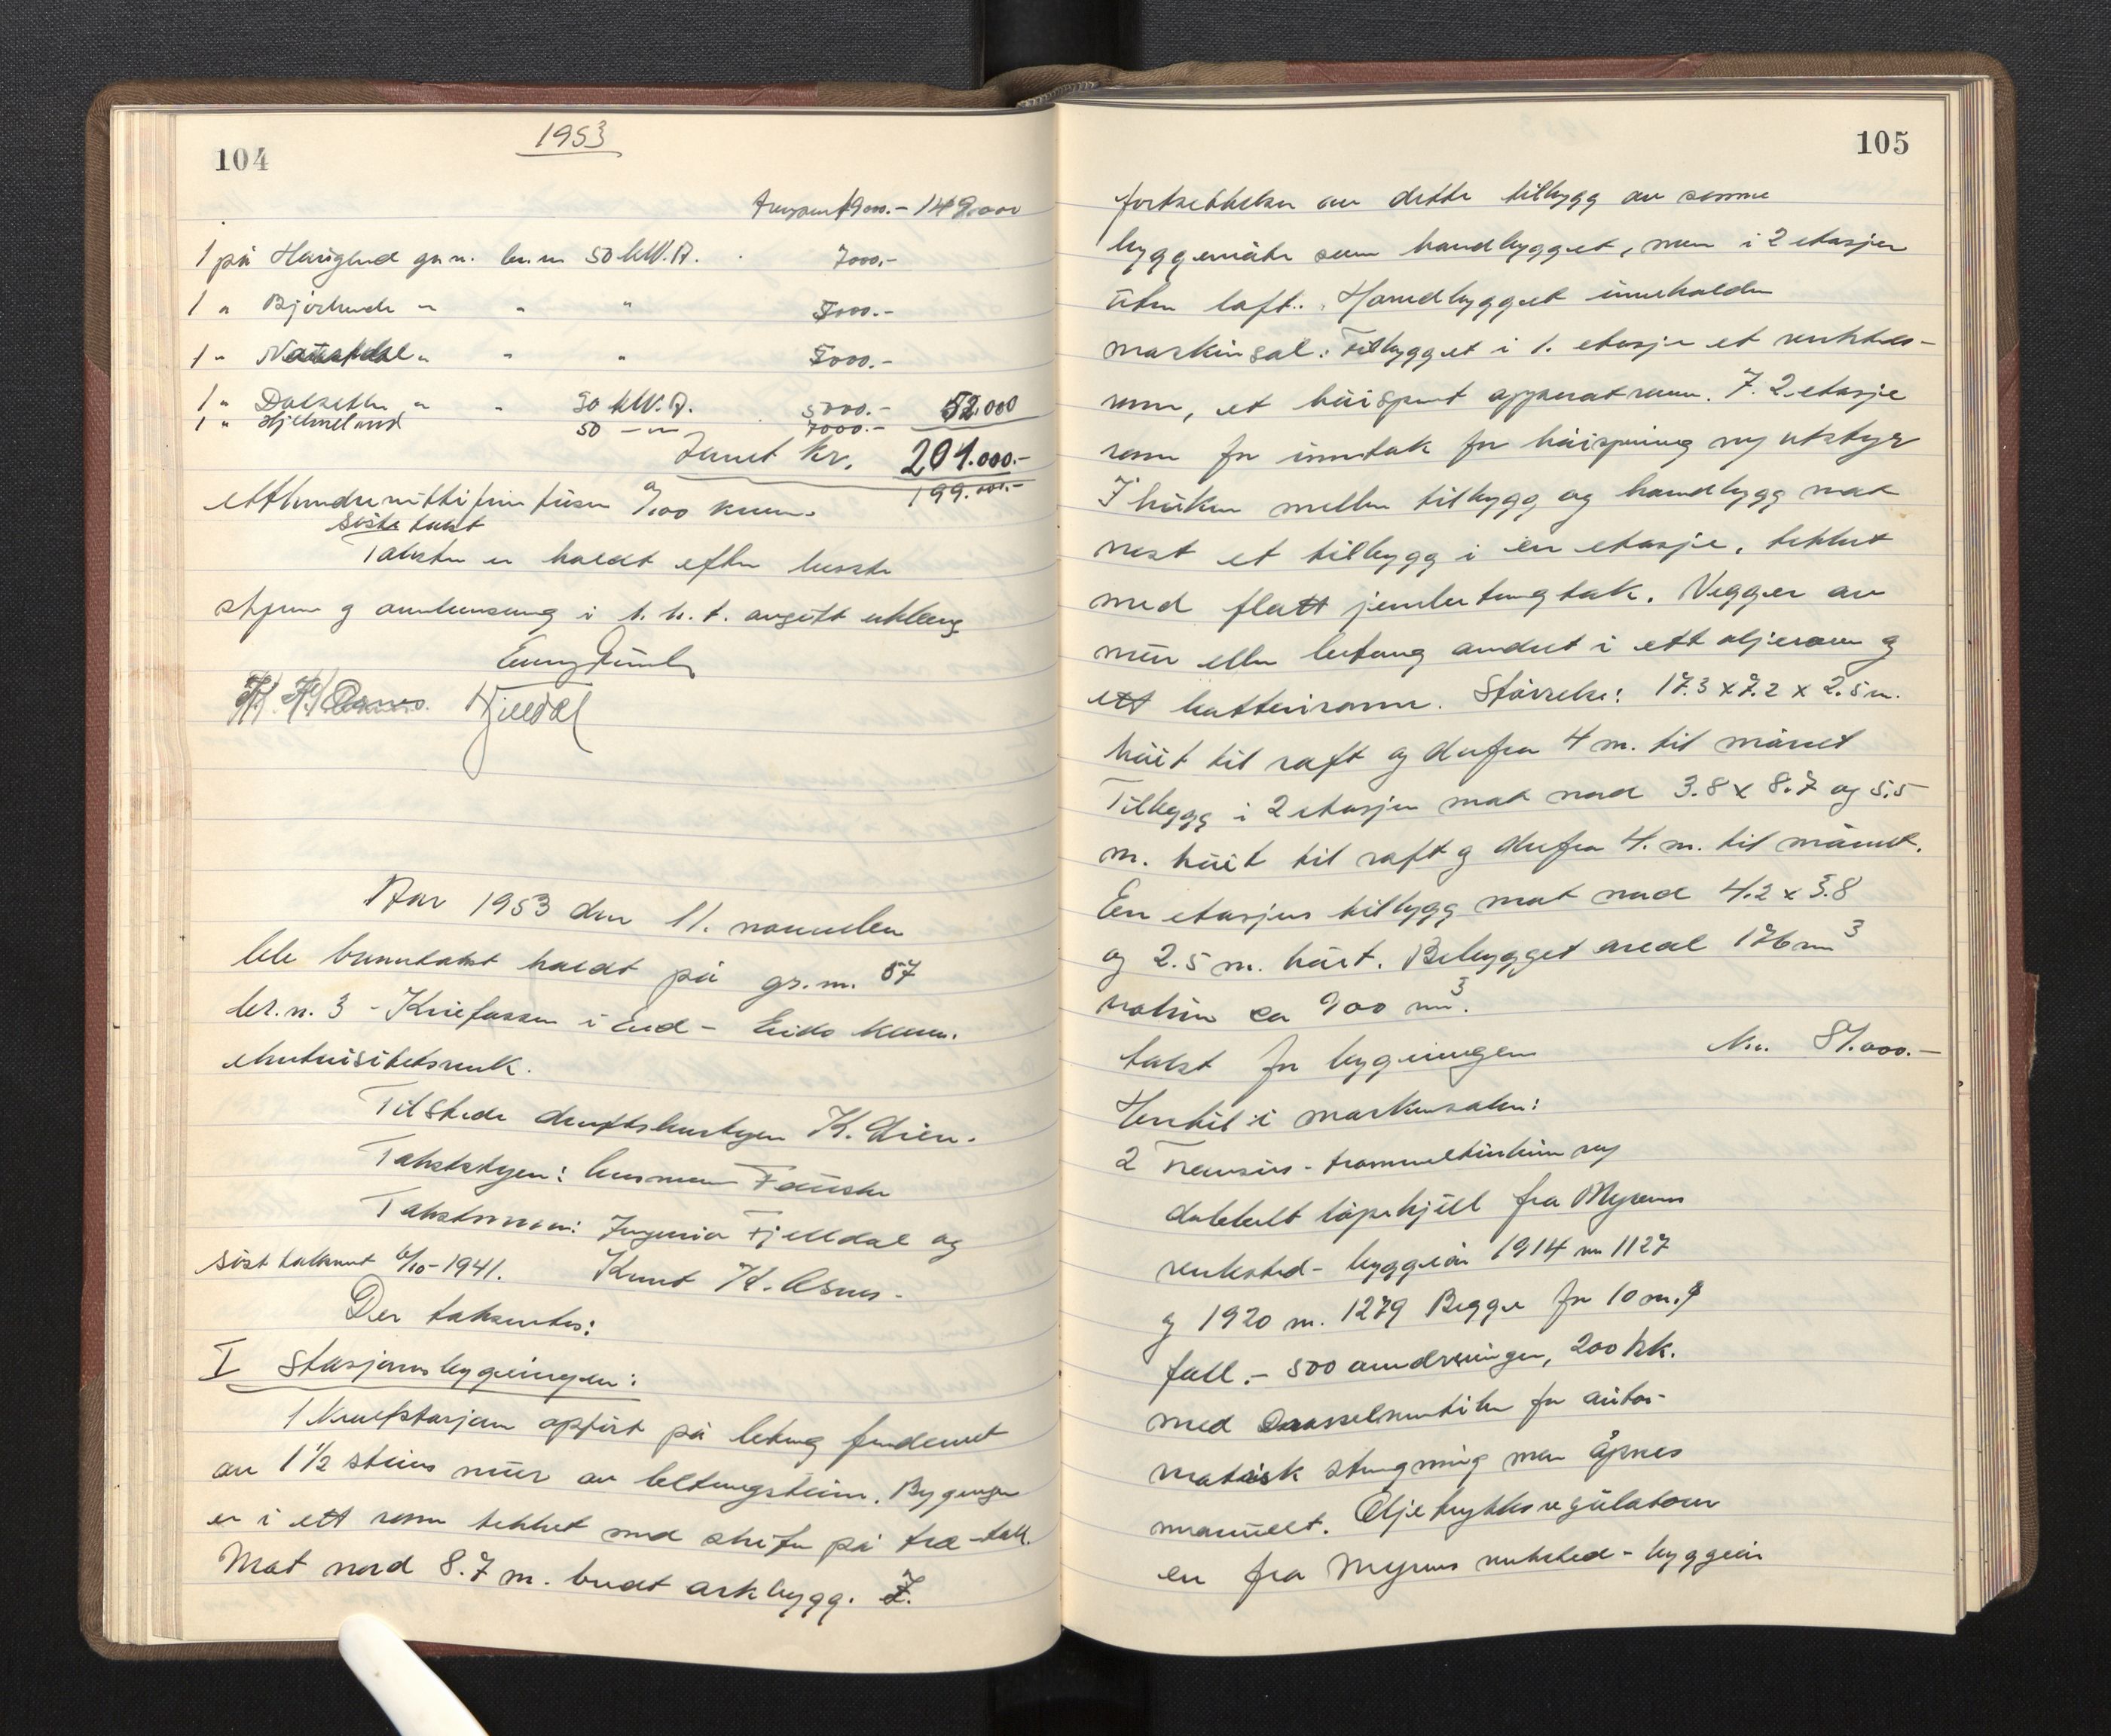 104
1953
149.000
1 på Hauglend gn.n. br.nr 50 kW.A. 7000.-
1 " " " " 7000.-
1 " Naustdal " " " 7000.-
1 " Dalsetln " " 30 kW.A. 5000.- 52.000
1 " Hjelmeland 50 - " - 7000.-
Samt kr. 201.000.-
199.000.-
etthundrenittini tusen 0/100 kroner
siste takst
Taksten er haldt efter beste
skjønn og i h.h.t. avgitt
Fjelldal
Aar 1953 den 11. november
ble branntakst haldt på gr.nr. 57
br.nr. 3 - i Eid - Eids komm.
elektrisitetsverk.
Tilstede driftsbestyrer K. Öien.
Takstbestyrer: lensmann Fauske
Takstmenn: Ingeniør Fjelldal og
sist taksert 6/10-1941. Knut K. Osnes.
Der taksertes:
I Stasjonsbygningen:
1 Kraftstasjon oppført på betong fundament
av 1 1/2 steins mur av betongstein. Bygningen
er i ett rom tekket med skifer på tre-tak.
Mot nord 8.7 m. bredt arkbygg. I
105
fortsettelsen av dette tilbygg av samme
byggemåte som hovedbygget, men i 2 etasjer
uten loft. Hovedbygget inneholder
maskinsal. Tilbygget i 1. etasje et verksteds-
rom, et høispent apparatrom. I 2. etasje
rom for inntak for høispenning og utstyr
I huken mellem tilbygg og hovedbygg mot
vest et tilbygg i en etasje, tekket
med flatt jernbetong tak. Vegger av
mur eller betong avdelt i ett oljerom og
ett batterirom. Størrelse: 17.3 x 7.2 x 2.5 m.
høit til raft og derfra 4 m. til mønet
Tilbygg i 2 etasjer mot nord 3.8 x 8.7 og 5.5
m. høit til raft og derfra 4. m. til mønet.
En etasjes tilbygg mot nord 4.2 x 3.8
og 2.5 m. høit. Bebygget areal 176 m3
volum ca 900 m3.
takst for bygningen kr. 81.000.-
Hertil i maskinsalen:
2 Francis - trommelturbiner og
dobbelt løpehjul fra Myrens
verksted - byggeår 1914 nr 1127
og 1920 nr. 1279 Begge for 10 m.
fall. - 500 omdreininger, 200 hk.
med Drosselventiler for auto-
matisk stengning men åpnes
manuelt. Oljetrykksregulatorer
en fra Myrens verksted - byggeår